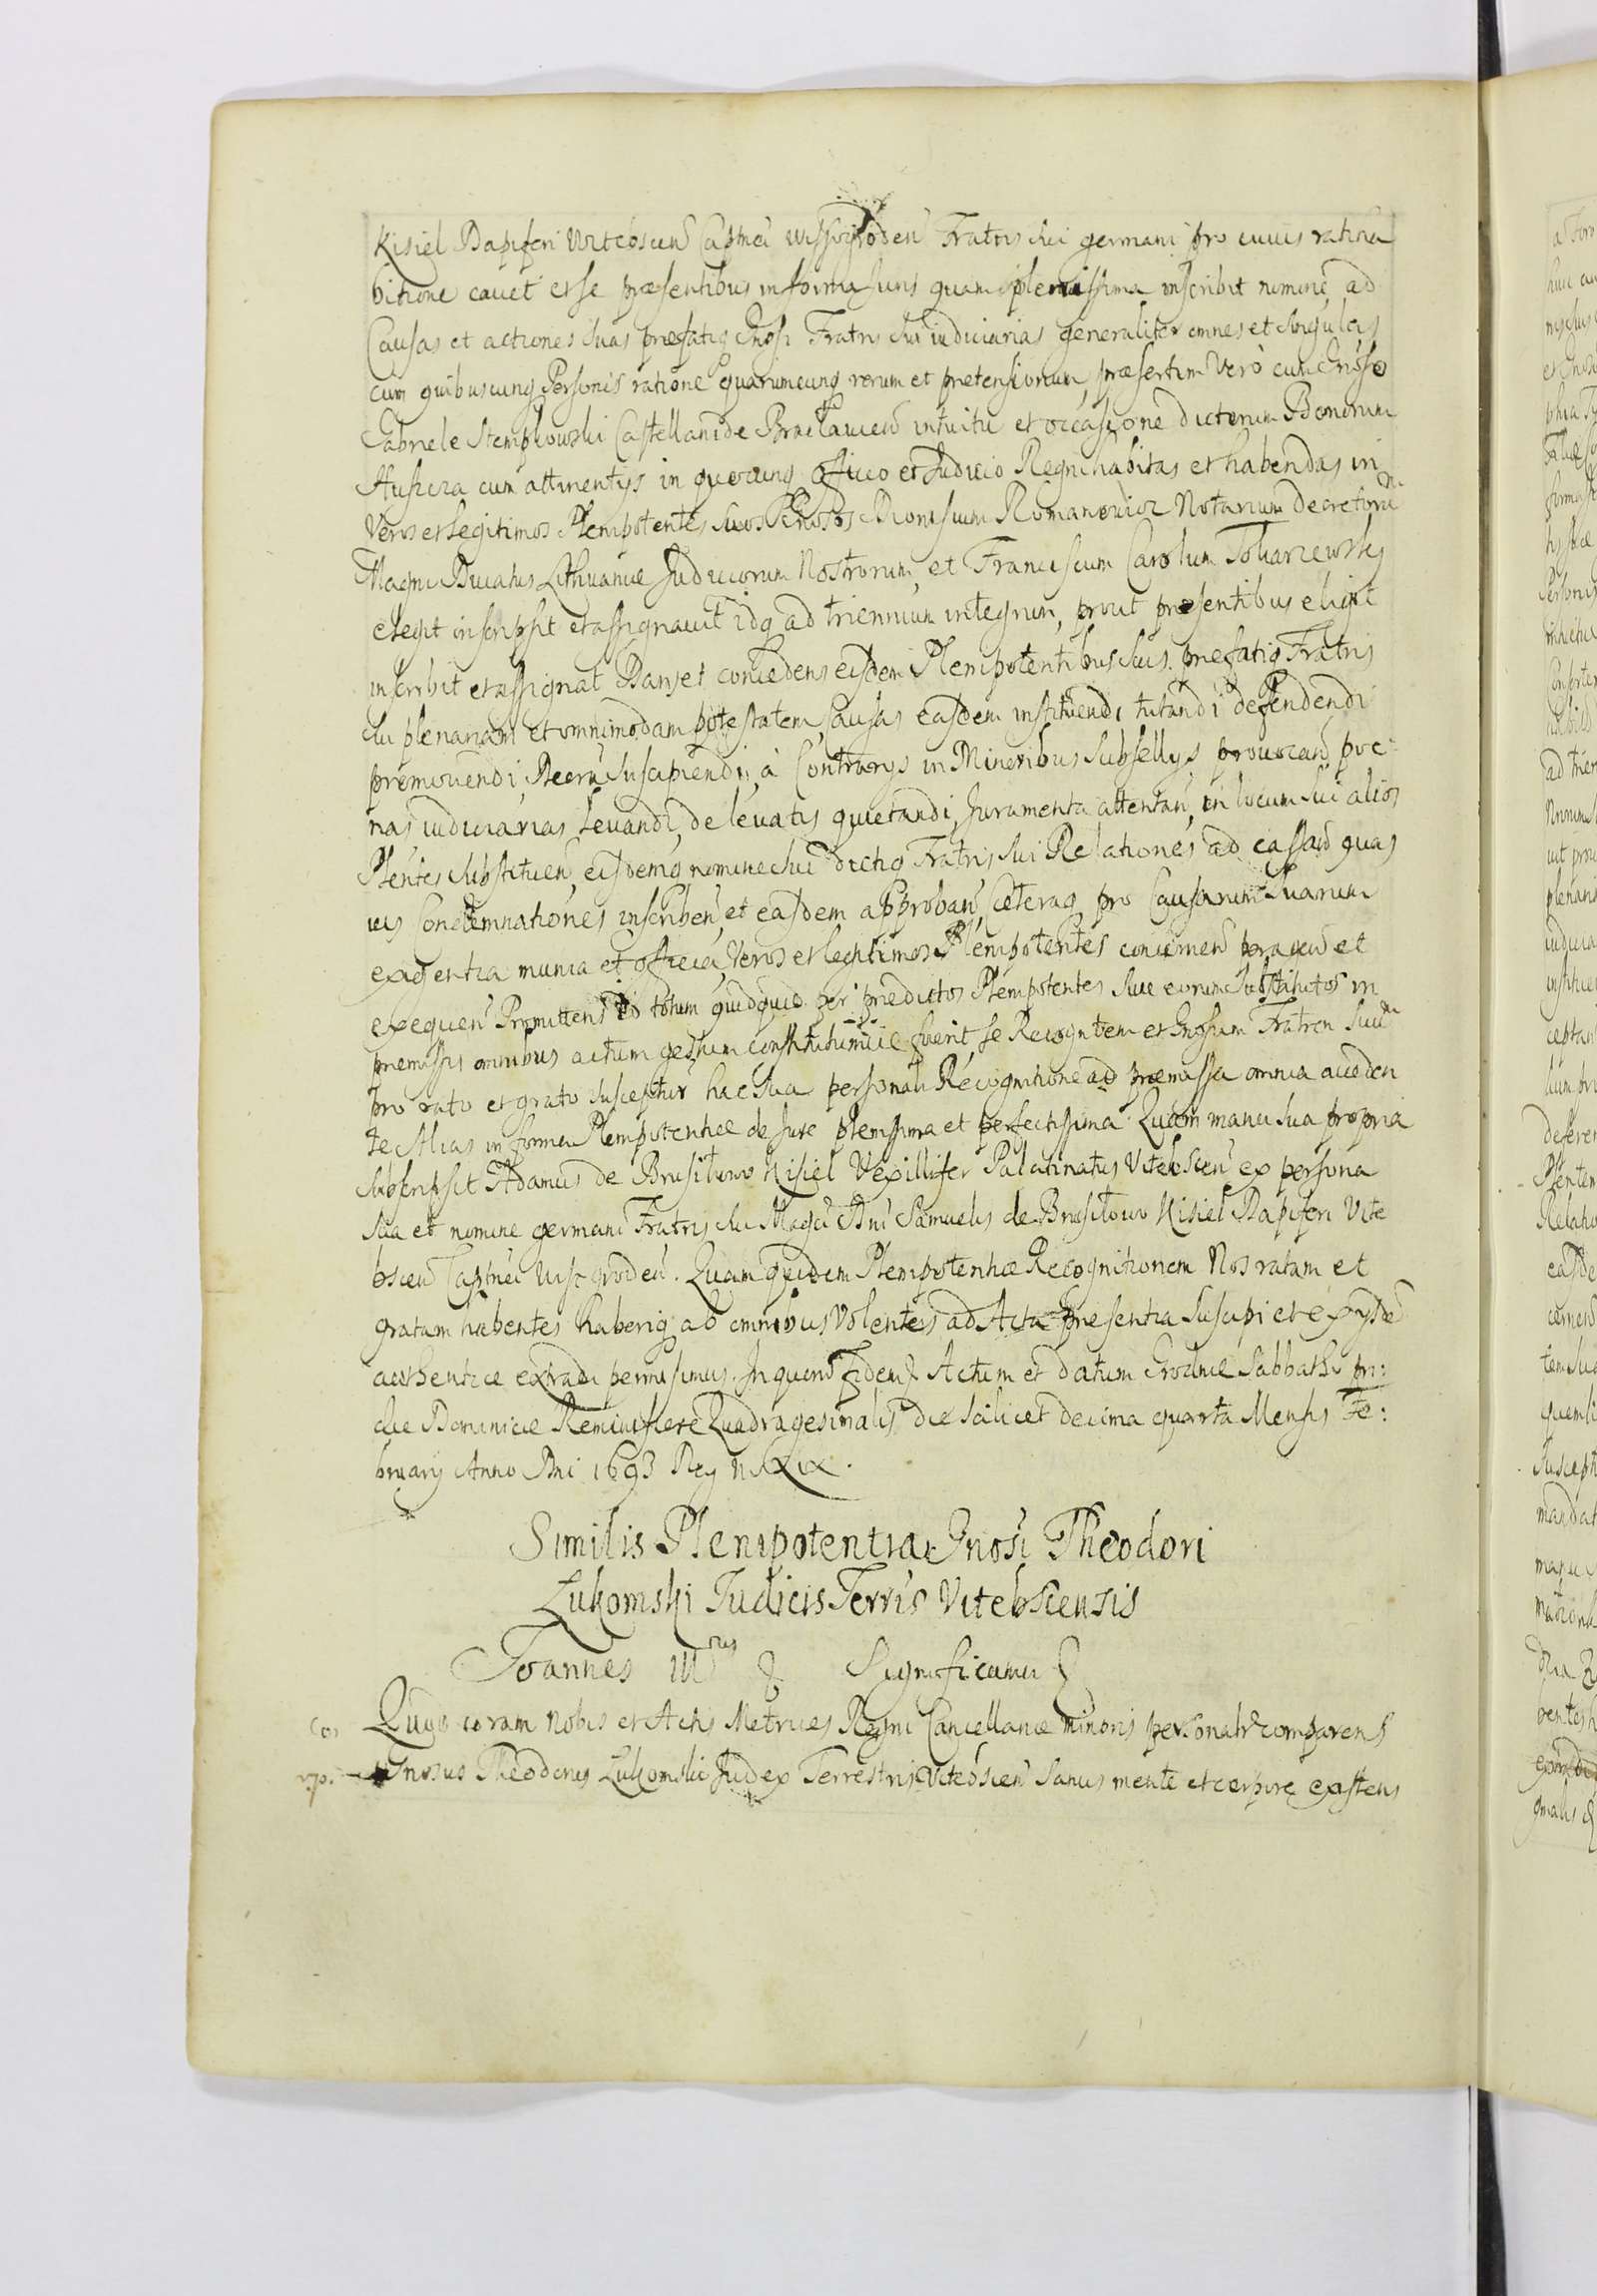 Kisiel Dapiferi Vitebscen Captnei Wissogroden Fratris sui germani pro cuius ratiha
bitione cavet et se præsentibus in forma Iuris quam plenissima inscribit nomine ad
Causas et actiones suas præfatiq Gnosi Fratris sui iudiciarias generaliter omnes et singulas
cum quibuscunq Personis ratione quarumcunq rerum et pretensionum, præsertim Verò cum Gnoso
Gabriele Stempkowski Castellanide Braclavien intuitu et occasione dictorum Bonorum
cum attinentys in quocunq officio et Iudicio Regni habitas et habendas in
Veros et legitimos Plenipotentes suos Gnosos Dionisium Romanowicz Notarium Decretorum
Magni Ducatus Lithuaniæ Iudiciorum Nostrorum, et Franciscum Carolum
elegit inscripsit et assignavit idq ad triennium integrum, prout præsentibus eligit
inscribit et assignat Dans et concedens eisdem Plenipotentibus suis præfatiq Fratris
sui plenariam et omnimodam potestatem, Causas easdem instituendi tutandi defendendi
promovendi, Decreta suscipiendi, à Contrarys in Minoribus Subsellys provocan poe:
nas iudiciarias levandi, de levatis quietandi, Iuramenta attentan, in locum sui alios
Plentes substituen, eisdemq nomine sui dictiq Fratris sui Relationes ad cassan quas
vis Condemnationes inscriben, et easdem approban, ceteraq pro Causarum suarum
exigentia munia et officia, Veros et legitimos Plenipotentes concernen peragen et
exequen Promittens Id totum quidquid per prædictos Plenipotentes sive eorum substitutos in
præmissis omnibus actum gestum constitutumve fuerit se Recogntem et Gnosum Fratrem suum
pro rato et grato suscepturum hac sua personali Recognitione ad præmissa omnia acceden
te Alias in forma Plenipotentiæ de Iure plenissima et perfectissima. Quam manu sua propria
subscripsit Adamus de Brusiłowo Kisiel Vexillifer Palatinatus Vitebscen ex persona
sua et nomine germani Fratris sui Magci Dni Samuelis de Brusiłowo Kisiel Dapiferi Vite
bscen Captnei Wiszgroden. Quam quidem Plenipotentiæ Recognitionem Nos ratam et
gratam habentes haberiq ab omnibus Volentes ad Acta præsentia suscipi et ex ysdem
authentice extradi permisimus. In quorum fidem & Actum et datum Grodnæ Sabbatho pri:
die Dominicæ Reminiscere Quadragesimalis die scilicet decima quarta Mensis Fe:
bruary Anno Dni 1693 Reg n. XIX.
Similis Plenipotentia Gnosi Theodori
Łukomski Iudicis Terris Vitebscensis
Ioannes IIItius & Significamus &
Quod coram Nobis et Actis Metrices Regni Cancellariæ minoris personaltr comparens
Gnosus Theodorus Łukomski Iudex Terrestris Vitebscen Sanus mente et corpore existens